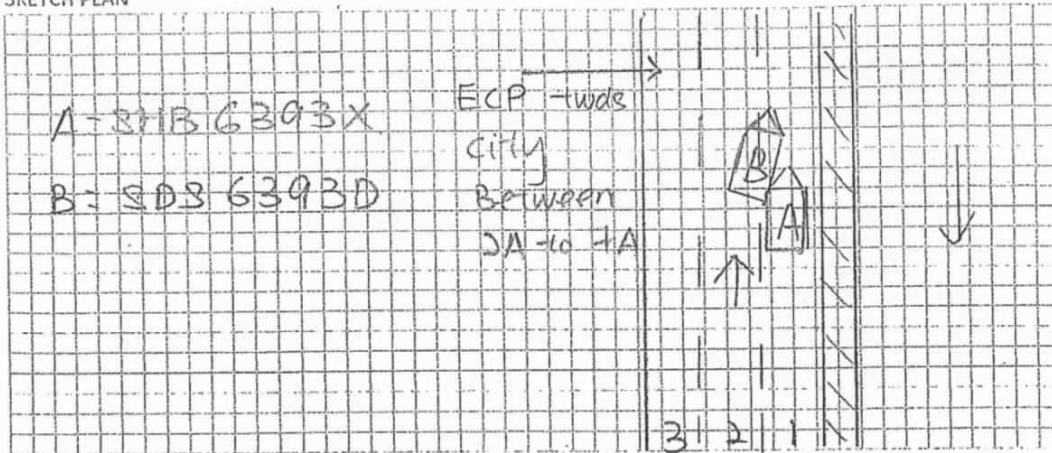 SKETCH PLAN
A = SHB 6393X
B = SDS 6393D
ECP twds
City
Between
2A to +A
B
A
3 2 1